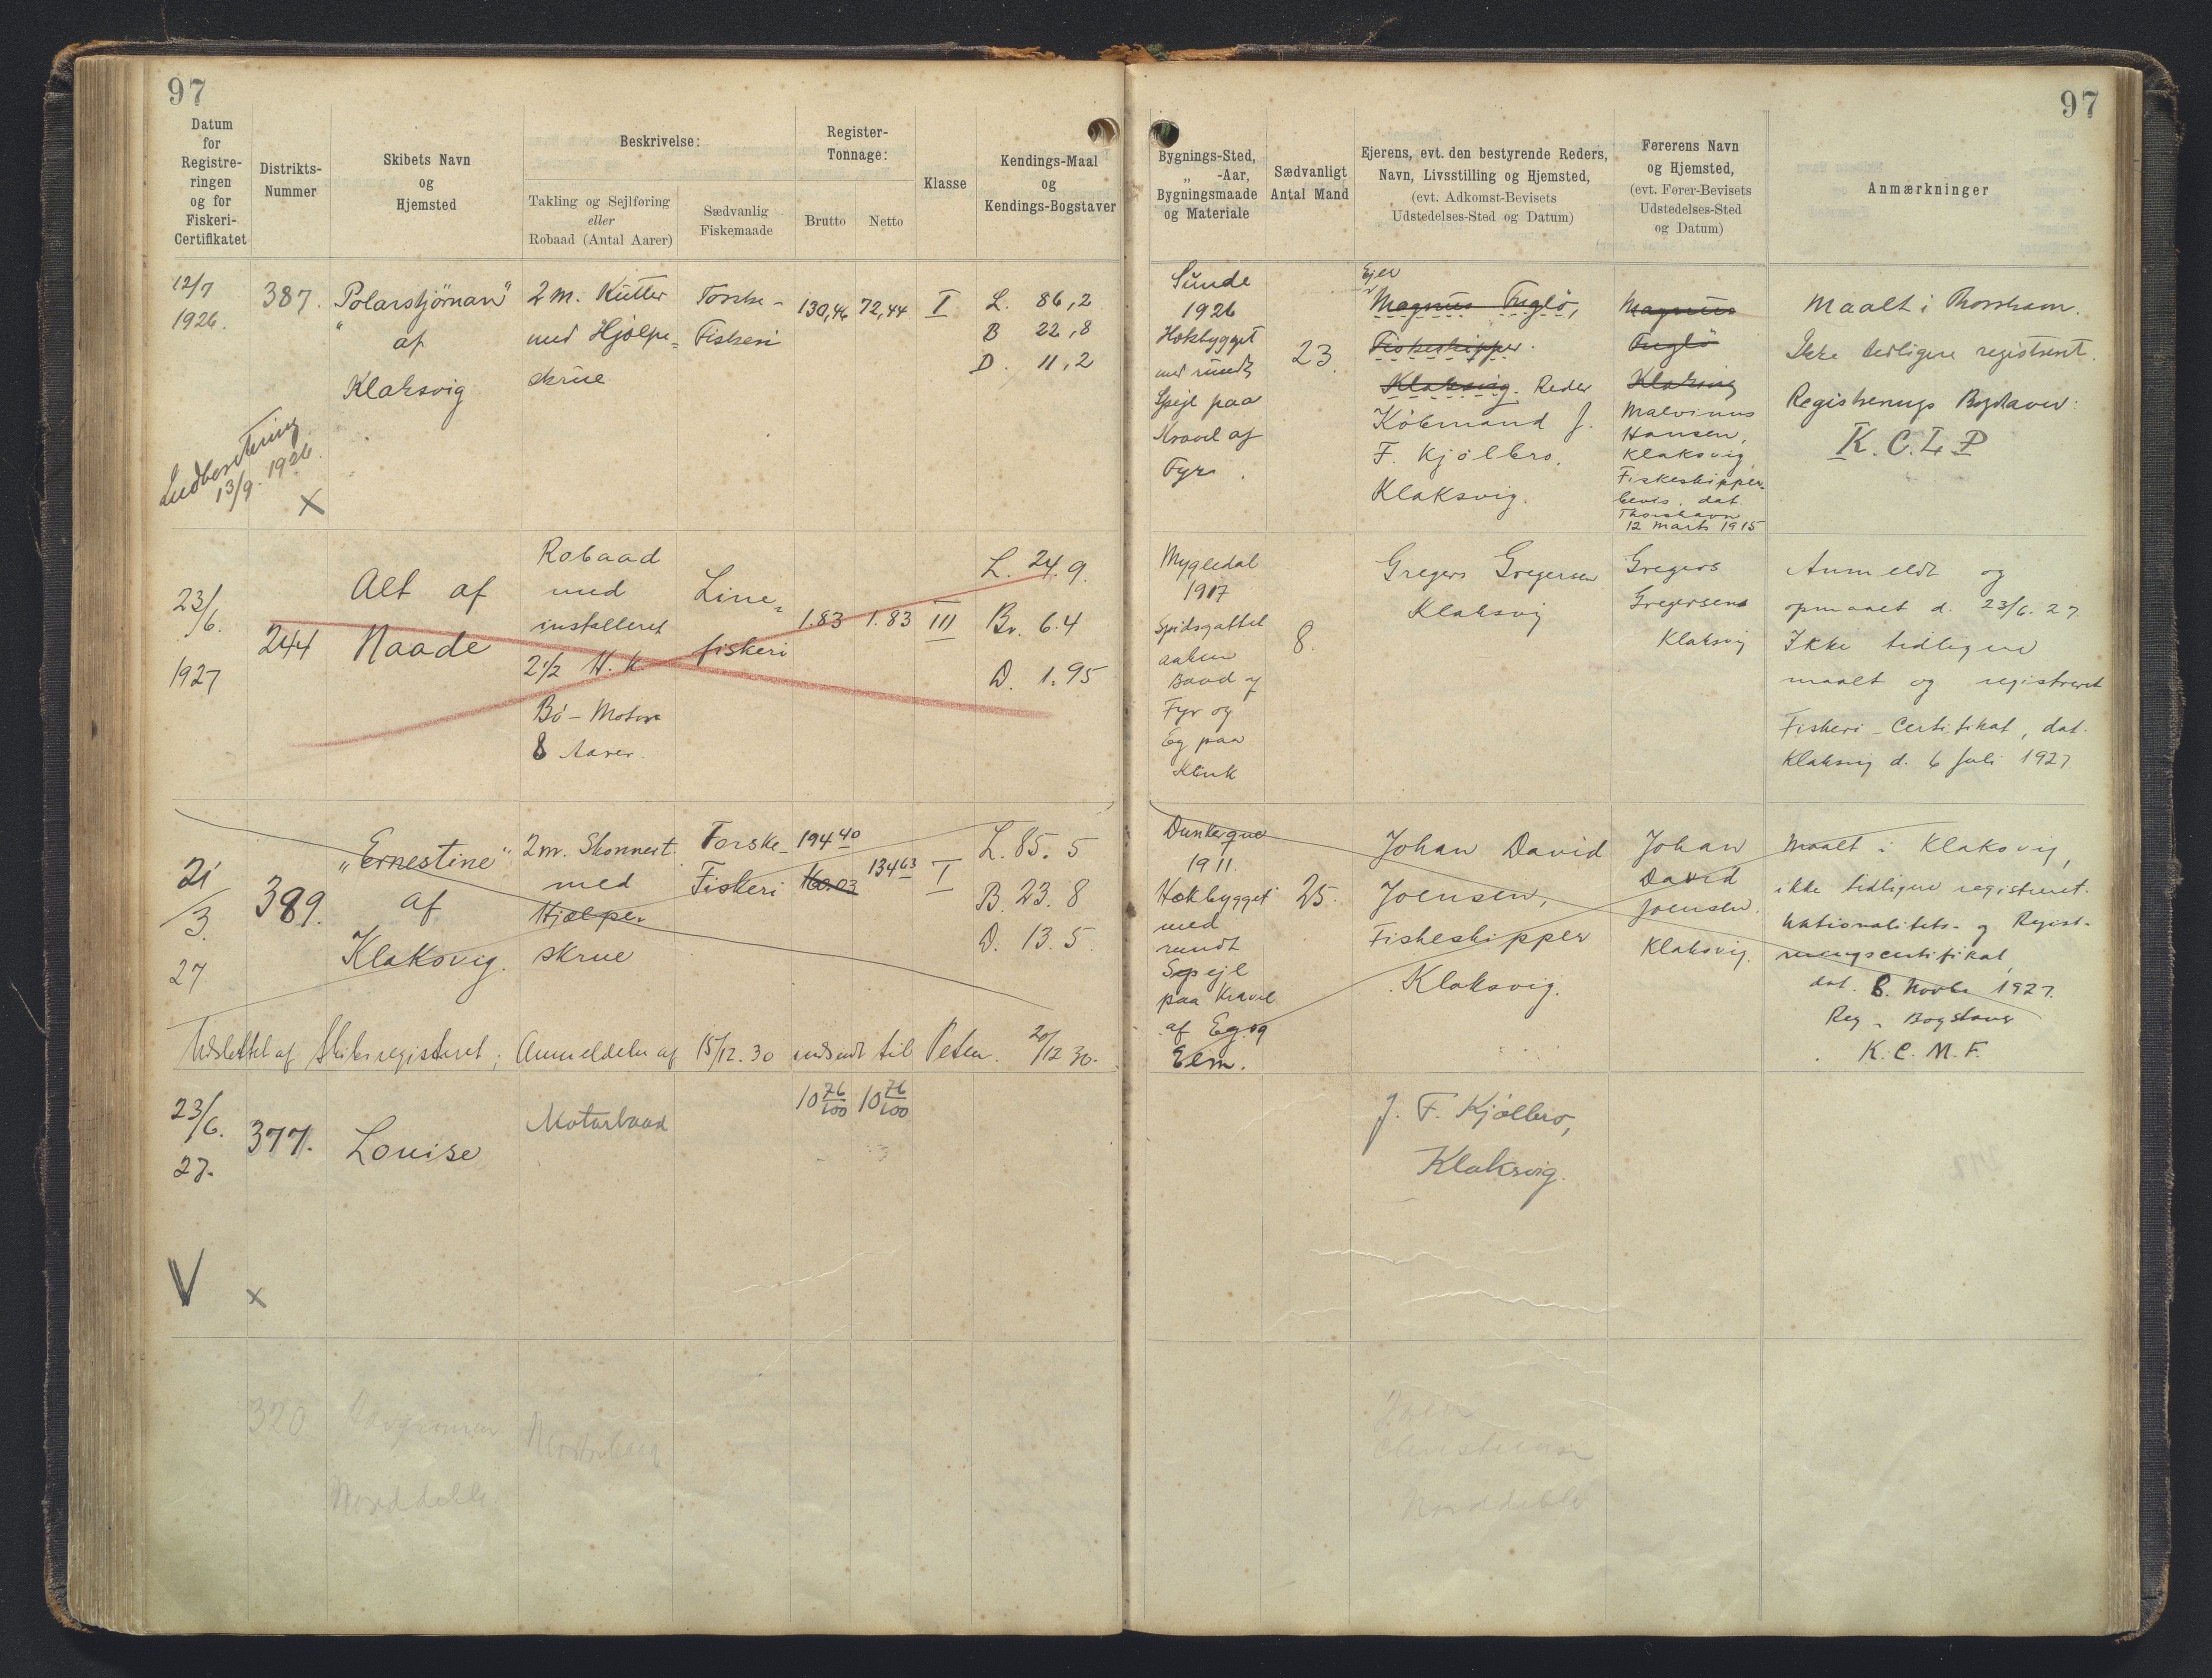 97
97
Datum
for
Registre-
ringen
og for
Fiskeri-
Certifikatet
Distrikts-
Nummer
Skibets Navn
og
Hjemsted
Beskrivelse:
Takling og Sejlføring
eller
Robaad (Antal Aarer)
Sædvanlig
Fiskemaade
Register-
Tonnage:
Brutto
Netto
Klasse
Kendings-Maal
og
Kendings-Bogstaver
Bygnings-Sted,
„ -Aar,
Bygningsmaade
og Materiale
Sædvanligt
Antal Mand
Ejerens, evt. den bestyrende Reders,
Navn, Livsstilling og Hjemsted,
(evt. Adkomst-Bevisets
Udstedelses-Sted og Datum)
Førerens Navn
og Hjemsted,
(evt. Fører-Bevisets
Udstedelses-Sted
og Datum)
Anmærkninger
12/7
1926.
Indberetning
13/9. 1926.
X
387.
„Polarstjörnan"
af
Klaksvig
2 m. Kutter
med Hjælpe-
skrue
Torske-
Fiskeri
130,46
72,44
I
L. 86,2
B 22,8
D. 11,2
Sunde
1926
Hækbygget
med rundt
Spejl paa
Kravel af
Fyr.
23.
Ejer
Magnus Fuglö,
Fiskeskipper.
Klaksvig. Reder
Købmand J.
F. Kjølbro,
Klaksvig.
Magnus
Fuglö
Klaksvig
Malvinus
Hansen,
Klaksvig,
Fiskeskipper-
bevis, dat.
Thorshavn
12 Marts 1915
Maalt i Thorshavn.
Ikke tidligere registreret.
Registrerings Bogstaver:
K.C.L.P
23/6.
1927
244
Alt af
Naade
Robaad
med
installeret
2 1/2 H.k.
Bö-Motor
8 Aarer.
Line-
fiskeri
1.83
1.83
III
L. 24.9.
Br. 6.4
D. 1.95
Mygledal
1917
Spidsgattet
aaben
Baad af
Fyr og
Eg paa
Klink
8.
Gregers Gregersen
Klaksvig
Gregers
Gregersen
Klaksvig
Anmeldt og
opmaalt d. 23/6. 27.
Ikke tidligere
maalt og registreret
Fiskeri-Certifikat, dat.
Klaksvig d. 6 Juli 1927
21/3.
27
389.
„Ernestine"
af
Klaksvig.
2 m. Skonnert
med
Hjælpe-
skrue
Torske-
Fiskeri
194 40
160.03
134 63
I
L. 85.5
B. 23.8
D. 13.5.
Dunkerque
1911.
Hækbygget
med
rundt
Spejl
paa Kravel
af Eg og
Elm.
25.
Johan David
Joensen,
Fiskeskipper
Klaksvig.
Johan
David
Joensen.
Klaksvig.
Maalt i Klaksvig,
ikke tidligere registreret.
Nationalitets- og Regist-
reringscertifikat,
dat. 8. Novbr 1927.
Reg. Bogstaver
K.C.M.F.
Udslettet af Skibsregisteret; Anmeldelse af 15/12.30 indsendt til 20/12 30.
23/6.
27.
V
x
377.
Louise
Motorbaad
10 76/100
10 76/100
J. F. Kjølbro,
Klaksvig.
320
Norddeble
Motorbaad
Christiansen
Norddeble